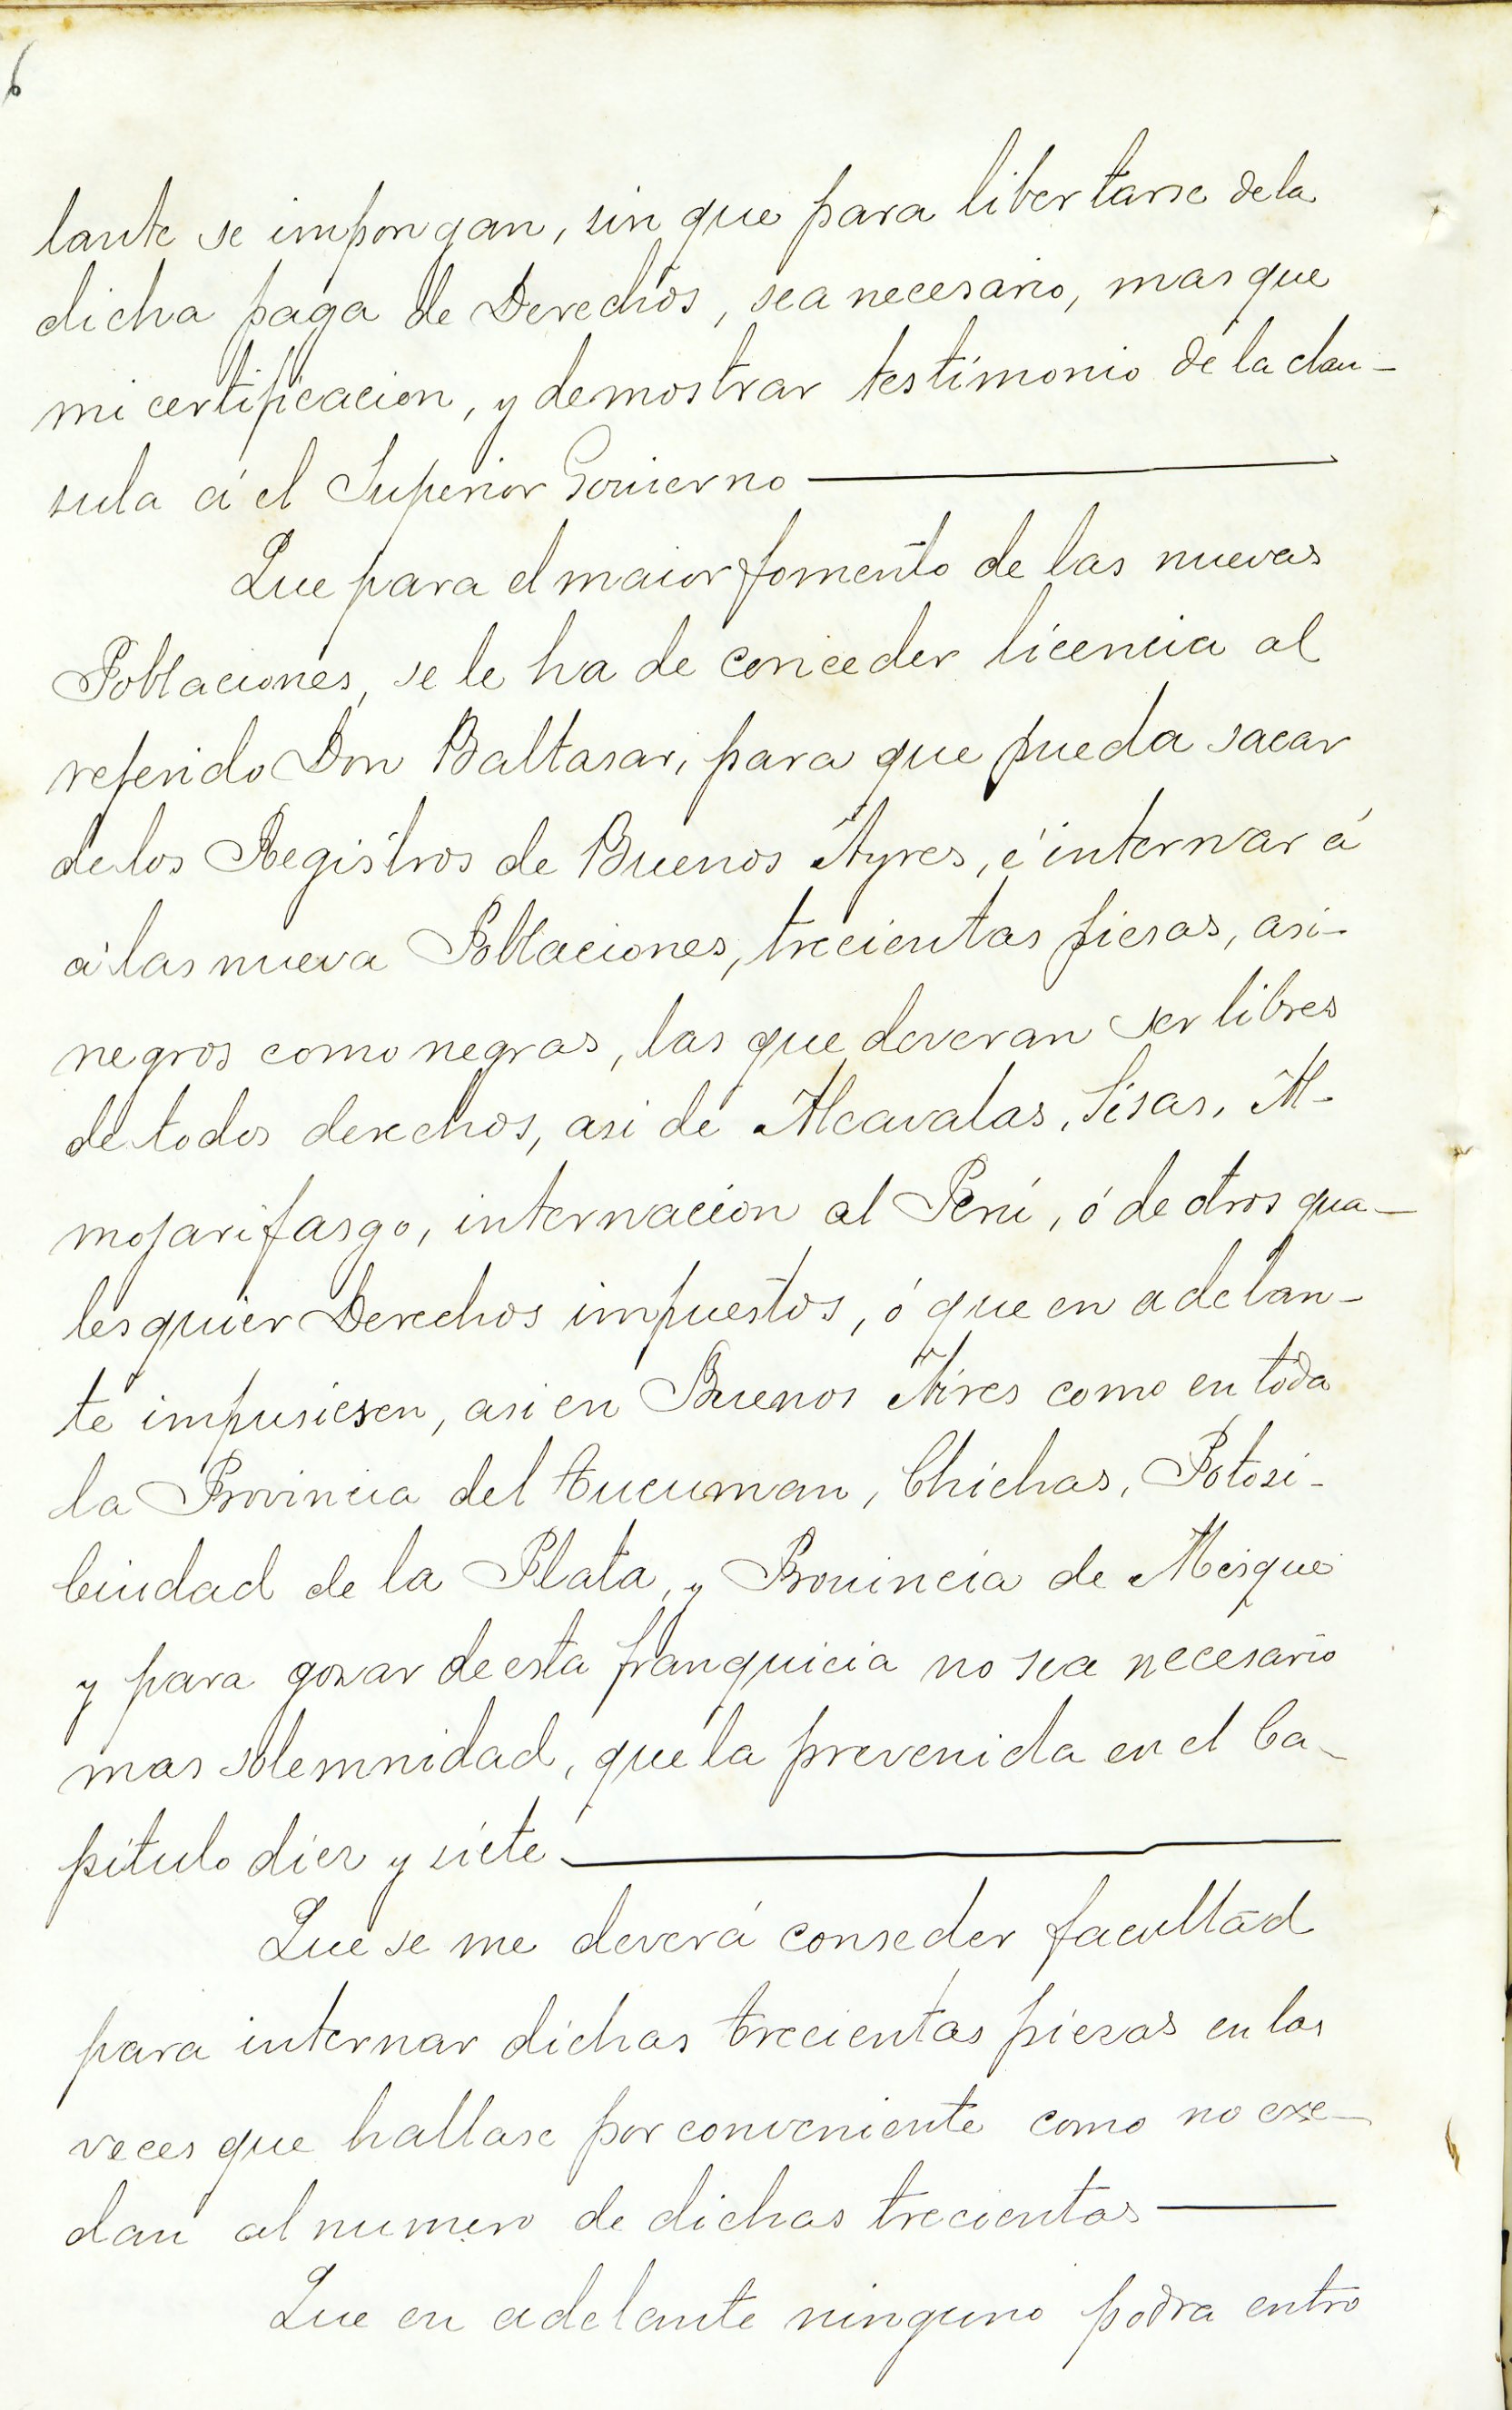 6
lante se impongan, sin que para libertarse dela
dicha paga de Derechos, sea necesario, mas que
mi certificacion, y demostrar testimonio de la clau-
sula á el Superior Gouierno
Que para el maior fomento de las nuevas
Poblaciones, se le ha de conceder licencia al
referido Don Baltasar, para que pueda sacar
delos Registros de Buenos Ayres, é internar á
á las nueva Poblaciones, trecientas piesas, asi-
negros como negras, las que deveran ser libres
de todos derechos, asi de Alcavalas, Sisas, Al-
mojarifasgo, internacion al Perú, ó de otros qua-
lesquier Derechos impuestos, ó que en adelan-
te impusiesen, asi en Buenos Aires como en toda
la Provincia del Tucuman, Chichas, Potosi-
Ciudad de la Plata, y Prouincia de Misque
y para gozar de esta franquicia no sea necesario
mas solemnidad, que la prevenida en el Ca-
pitulo diez y siete
Que se me deverá conseder facultad
para internar dichas trecientas piezas en las
veces que hallase por conveniente como no exe-
dan al numero de dichas trecientas
Que en adelante ninguno podra entro